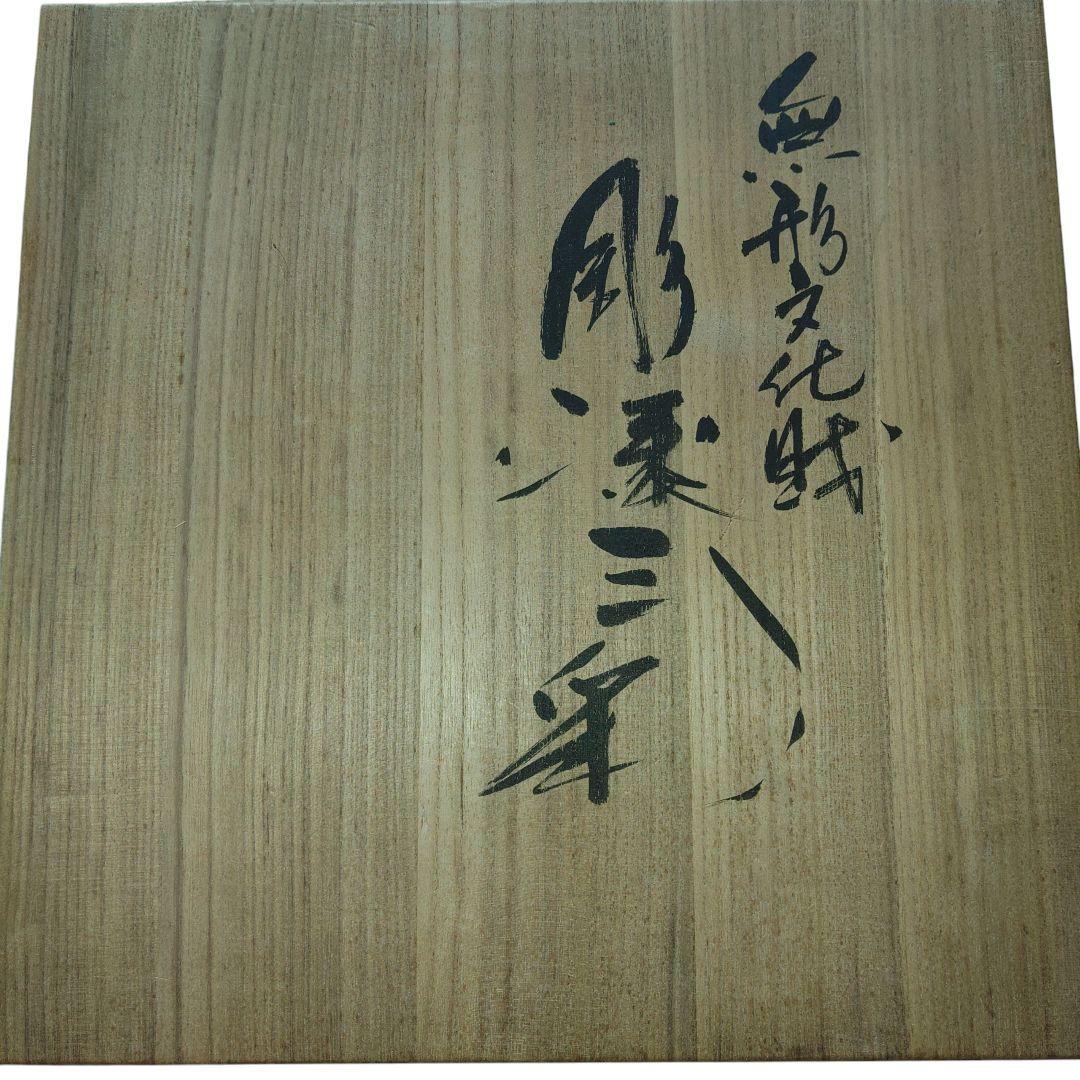 無形文化財
彫漆三彩